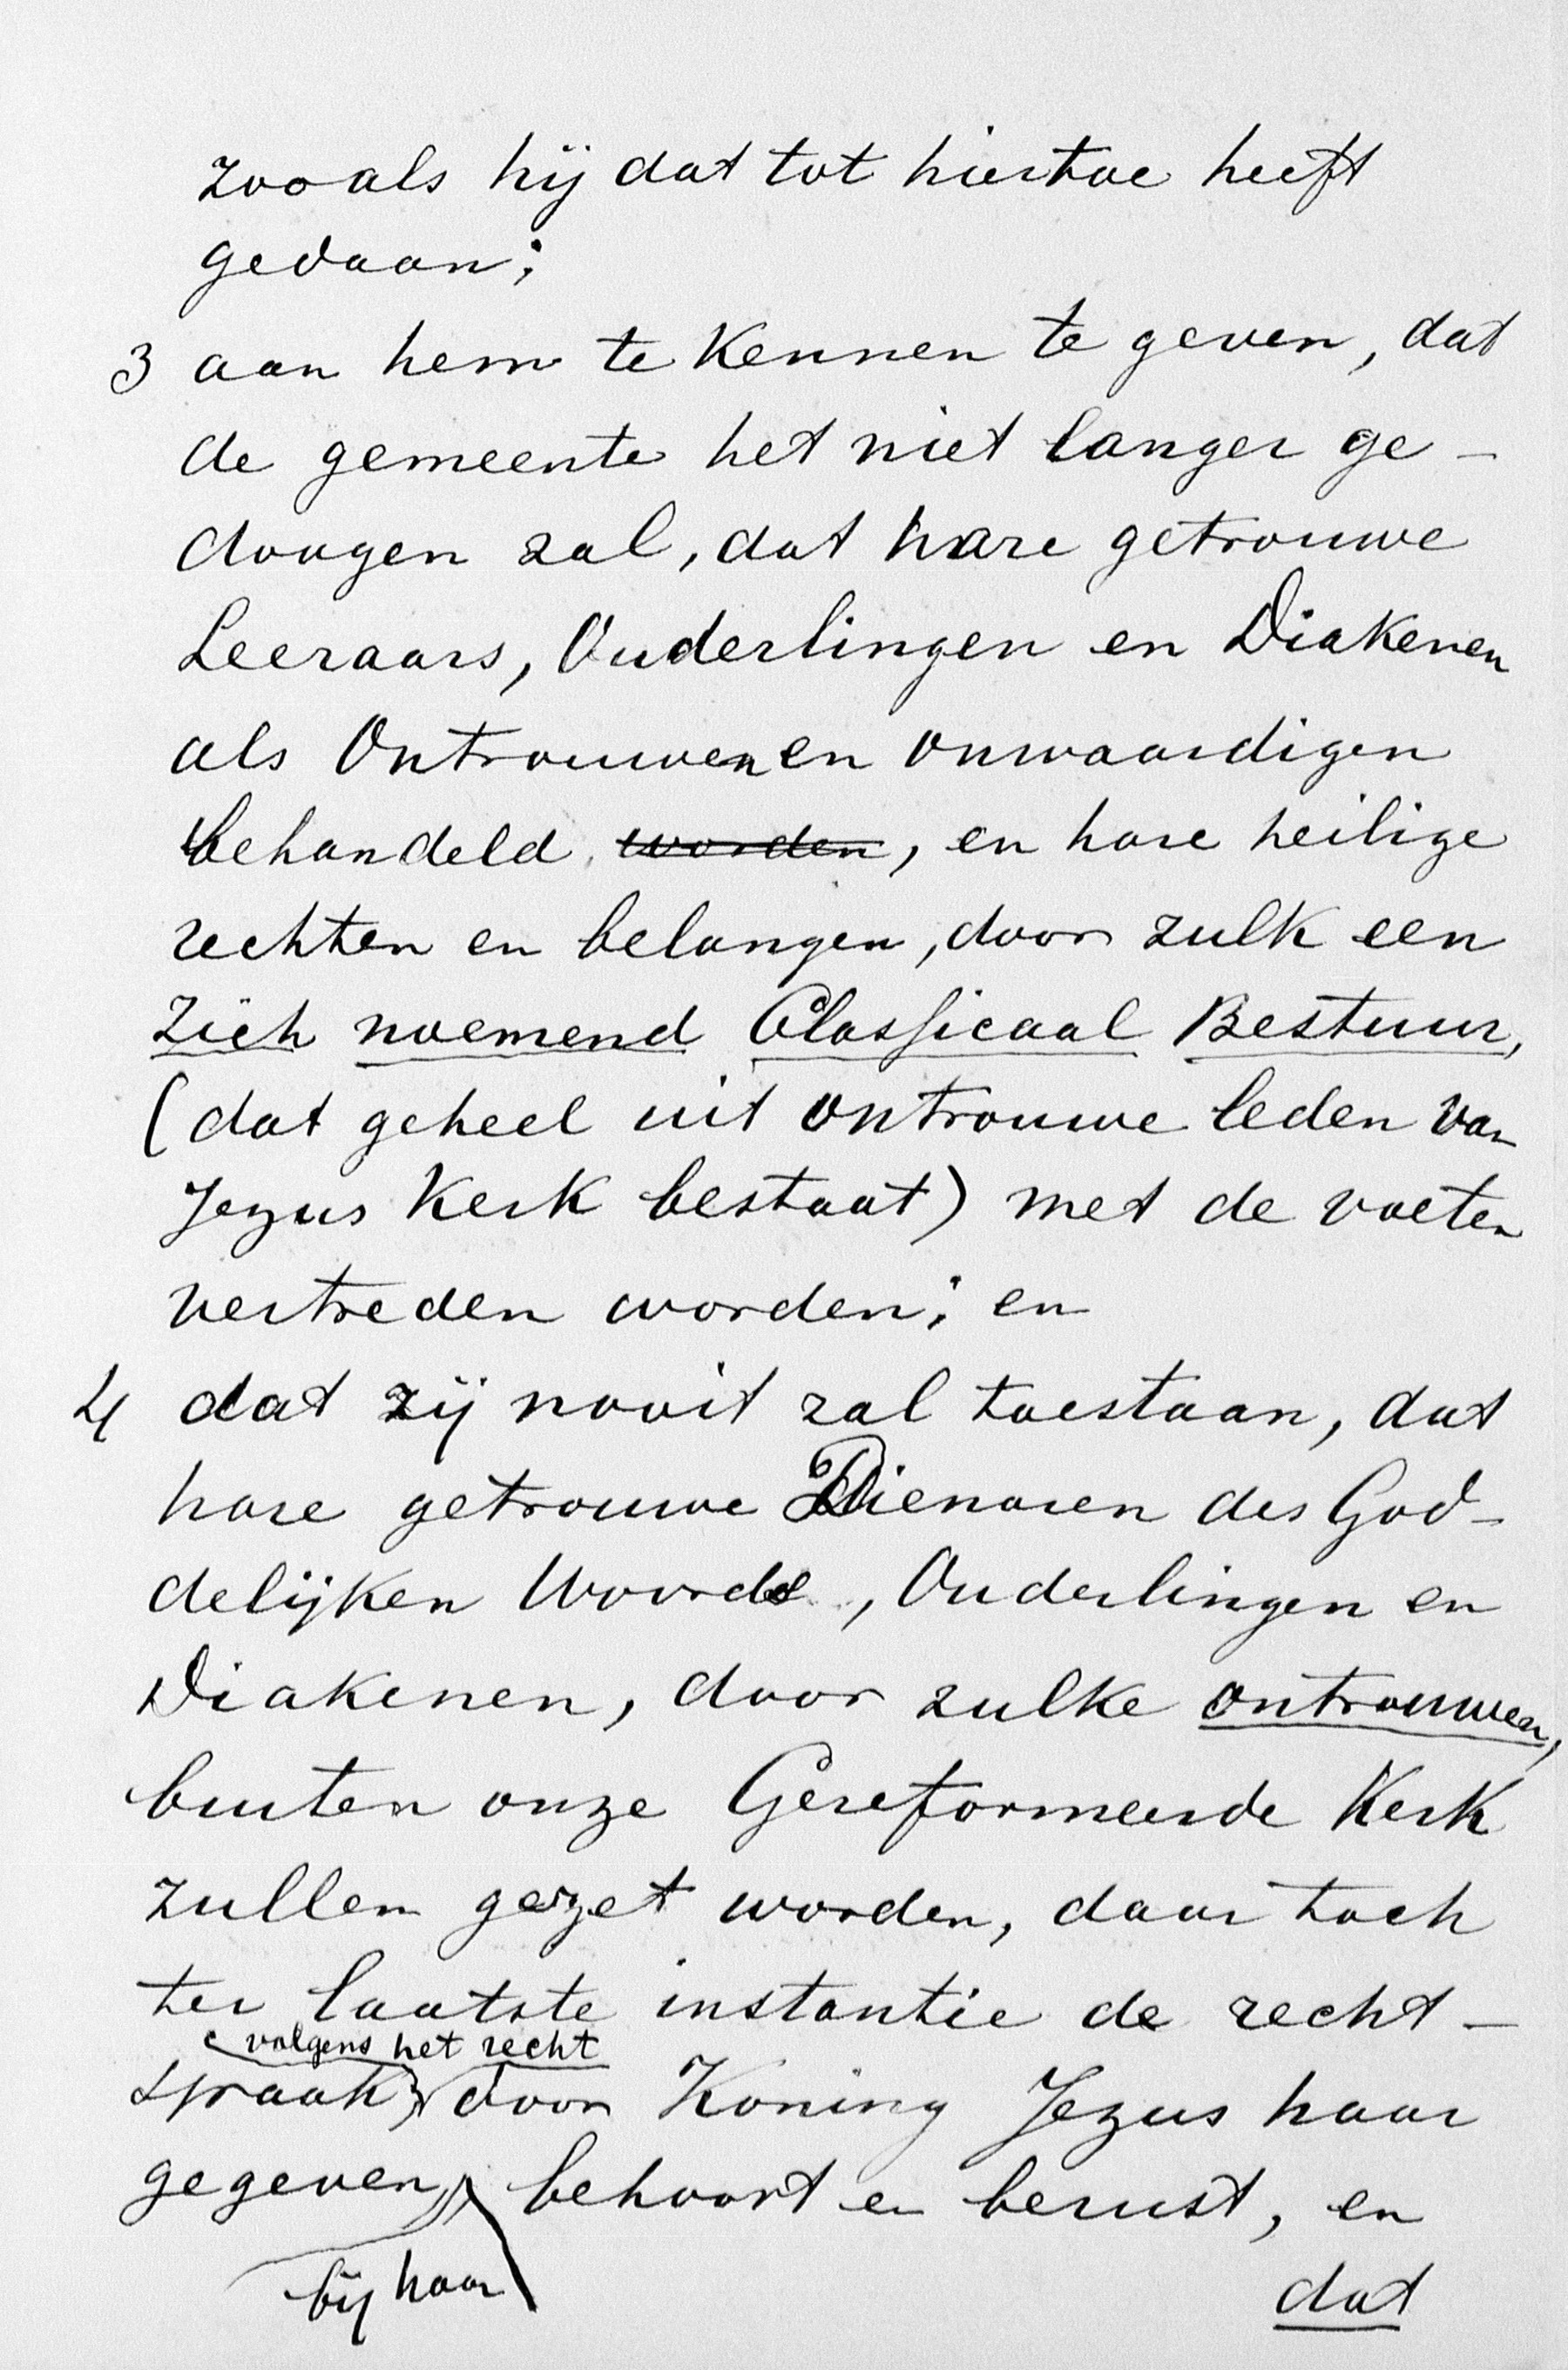 zooals hij dat tot hiertoe heeft
gedaan;
3 aan hem te Kennen te geven, dat
de gemeente het niet langer ge-
doogen zal, dat hare getrouwe
Leeraars, Ouderlingen en Diakenen
als Ontrouwen en onwaardigen
behandeld worden, en hare heilige
rechten en belangen, door zulk een
zich noemend Classicaal Bestuur,
(dat geheel uit ontrouwe leden van
Jezus Kerk bestaat) met de voeten
vertreden worden; en
4 dat zij nooit zal toestaan, dat
hare getrouwe Dienaren des God-
delijken Woords, Ouderlingen en
Diakenen, door zulke ontrouwen,
buiten onze Gereformeerde Kerk
zullen gezet worden, daar toch
ter laatste instantie de recht-
volgens het recht
spraak door Koning Jezus haar
gegeven, behoort en berust, en
bij haar
dat